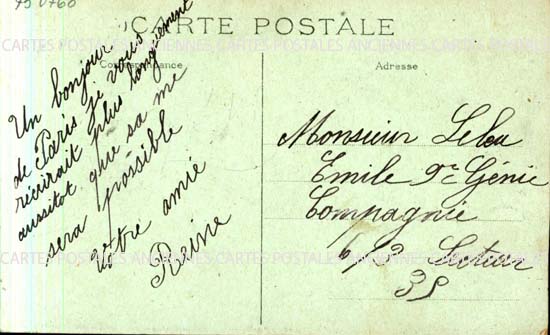 75 0760
CARTE POSTALE
CARTES POSTALES ANCIENNES CARTES POSTALES ANCIENNES CARTES POSTALES
Correspondance
Adresse
Un bonjour
de Paris je vous
récrirait plus longuement
aussitot que sa me
sera possible
Votre amie
Reine
Monsieur
Emile 9e Génie
Compagnie
6/3 Secteur
35
CARTES POSTALES ANCIENNES CARTES POSTALES ANCIENNES CARTES POSTALES